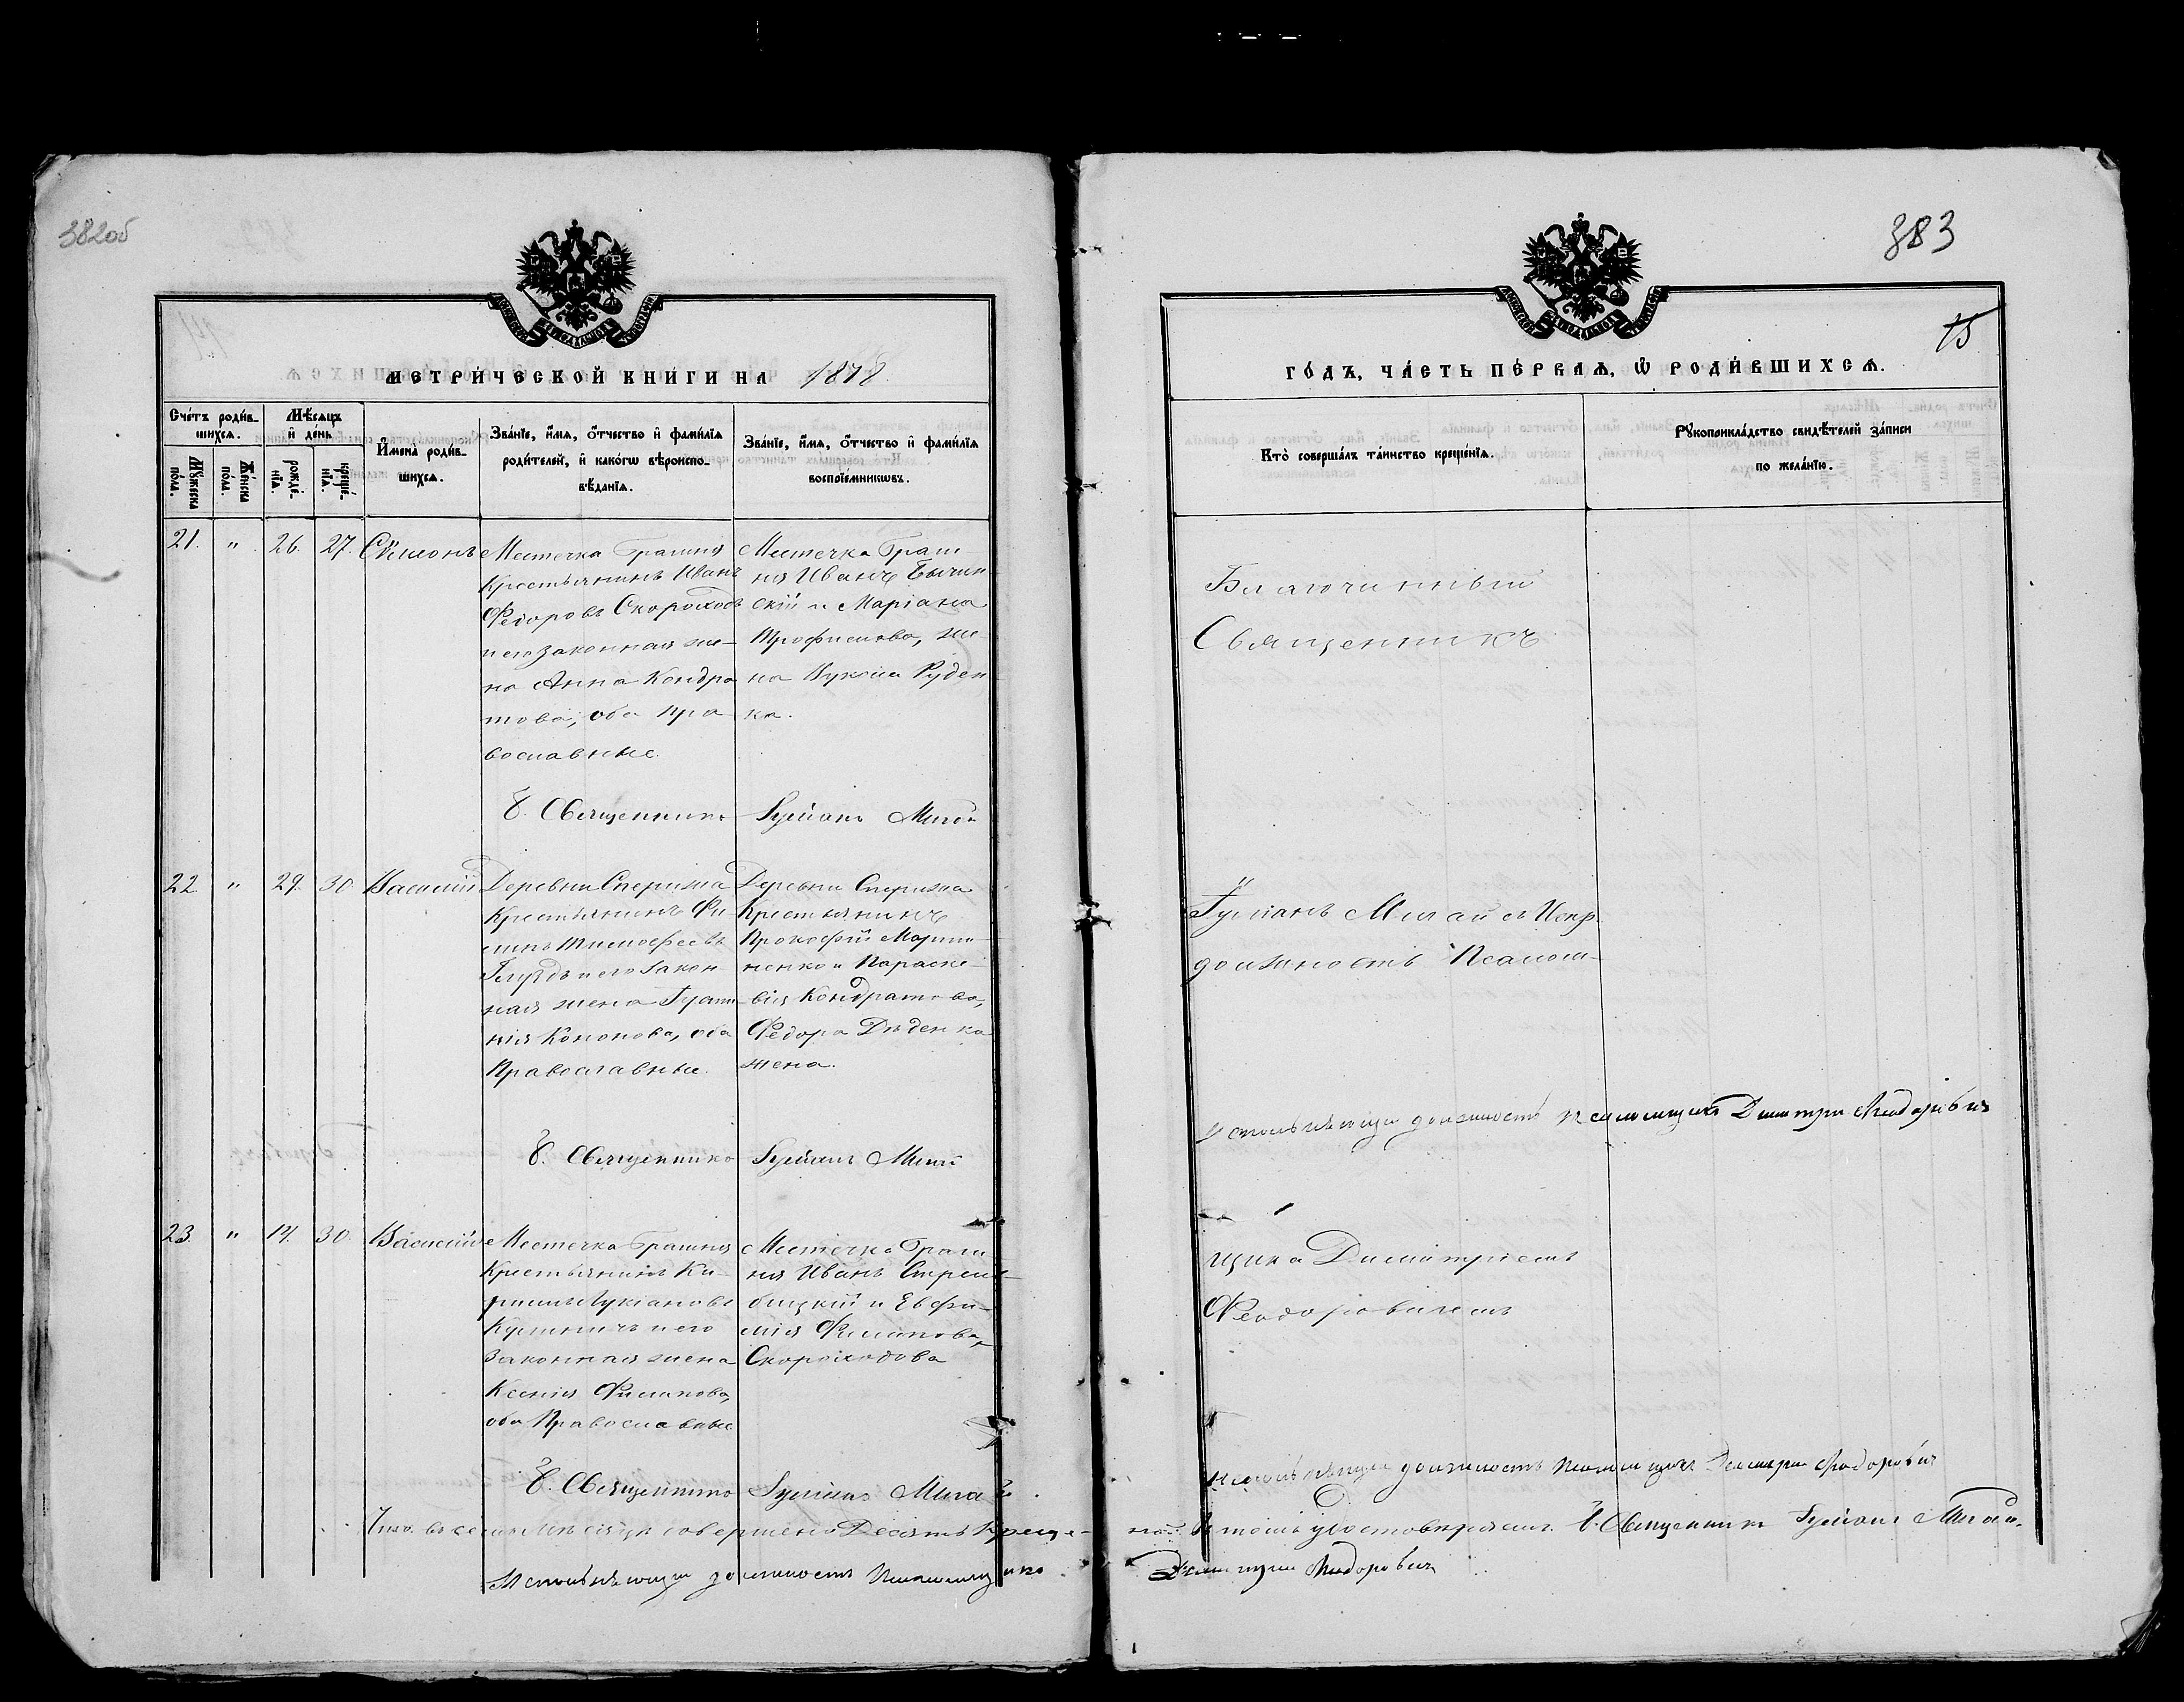 382об
МЕТРИ́ЧЕСКОЙ КНИ́ГИ НА 1878
Сче́тъ роди́в-
шихсѧ.
Мꙋ́жеска по́ла.
Же́нска по́ла.
Мѣ́сѧцъ
и҆ де́нь
рожде́-
нїѧ.
креще́-
нїѧ.
И҆мена̀ роди́в-
шихсѧ.
Зва́нїе, и҆́мѧ, ѻ҆́тчество и҆ фами́лїѧ
роди́телей, и҆ како́гѡ вѣроиспо-
вѣ́данїѧ.
Зва́нїе, и҆́мѧ, ѻ҆́тчество и҆ фами́лїѧ
воспрїе́мникѡвъ.
21. " 26. 27. Сѵмеонъ
Местечка Брагиня
Крестьянинъ Иванъ
Феодоровъ Скороходъ
и его законная же-
на Анна Кондра
това, оба пра
вославные.
Местечка Браги-
ня Иванъ
скій и Маріана
Трофимова, же-
на Руден
ка.
Священникъ Мигай
22. " 29. 30. Василій
Деревни Сперижа
Крестьянинъ Фи-
липъ Тимофеевъ
и его закон
ная жена
нія Кононова, оба
Православные.
Деревни Сперижа
Крестьянинъ
Прокофій Марти-
ненко и Параске-
вія Кондратова,
Феодора Дѣденка
жена.
Священникъ Мигай
23. " 14. 30. Василій
Местечка Брагиня
Крестьянинъ Ки-
риллъ Лукіановъ
и его
законная жена
Ксенія Филипова,
оба Православные
Местечка Браги
ня Иванъ Стрем-
бицкій и Евфи-
мія Филипова
Скороходова
Священникъ Мигай.
въ семъ мѣсяцѣ совершено Десять креще-
Исполняющій должность Псаломщика
383
15
ГО́ДЪ, ЧА́СТЬ ПЕ́РВАѦ, Ѡ҆ РОДИ́ВШИХСѦ.
Кто̀ соверша́лъ та́инство креще́нїѧ.
Рꙋкоприкла́дство свидѣ́телей за́писи
по жела́нїю.
Благочинный
Священникъ
Мигай съ Испр.
должность Псалом-
Исполняющій должность Псаломщика Димитрій Феодоровичъ
щика Димитріемъ
Феодоровичемъ
Исполняющій должность Псаломщика Димитрій Феодоровичъ
ній. Въ томъ удостовѣряемъ. Священникъ Мигай.
Димитрій Феодоровичъ